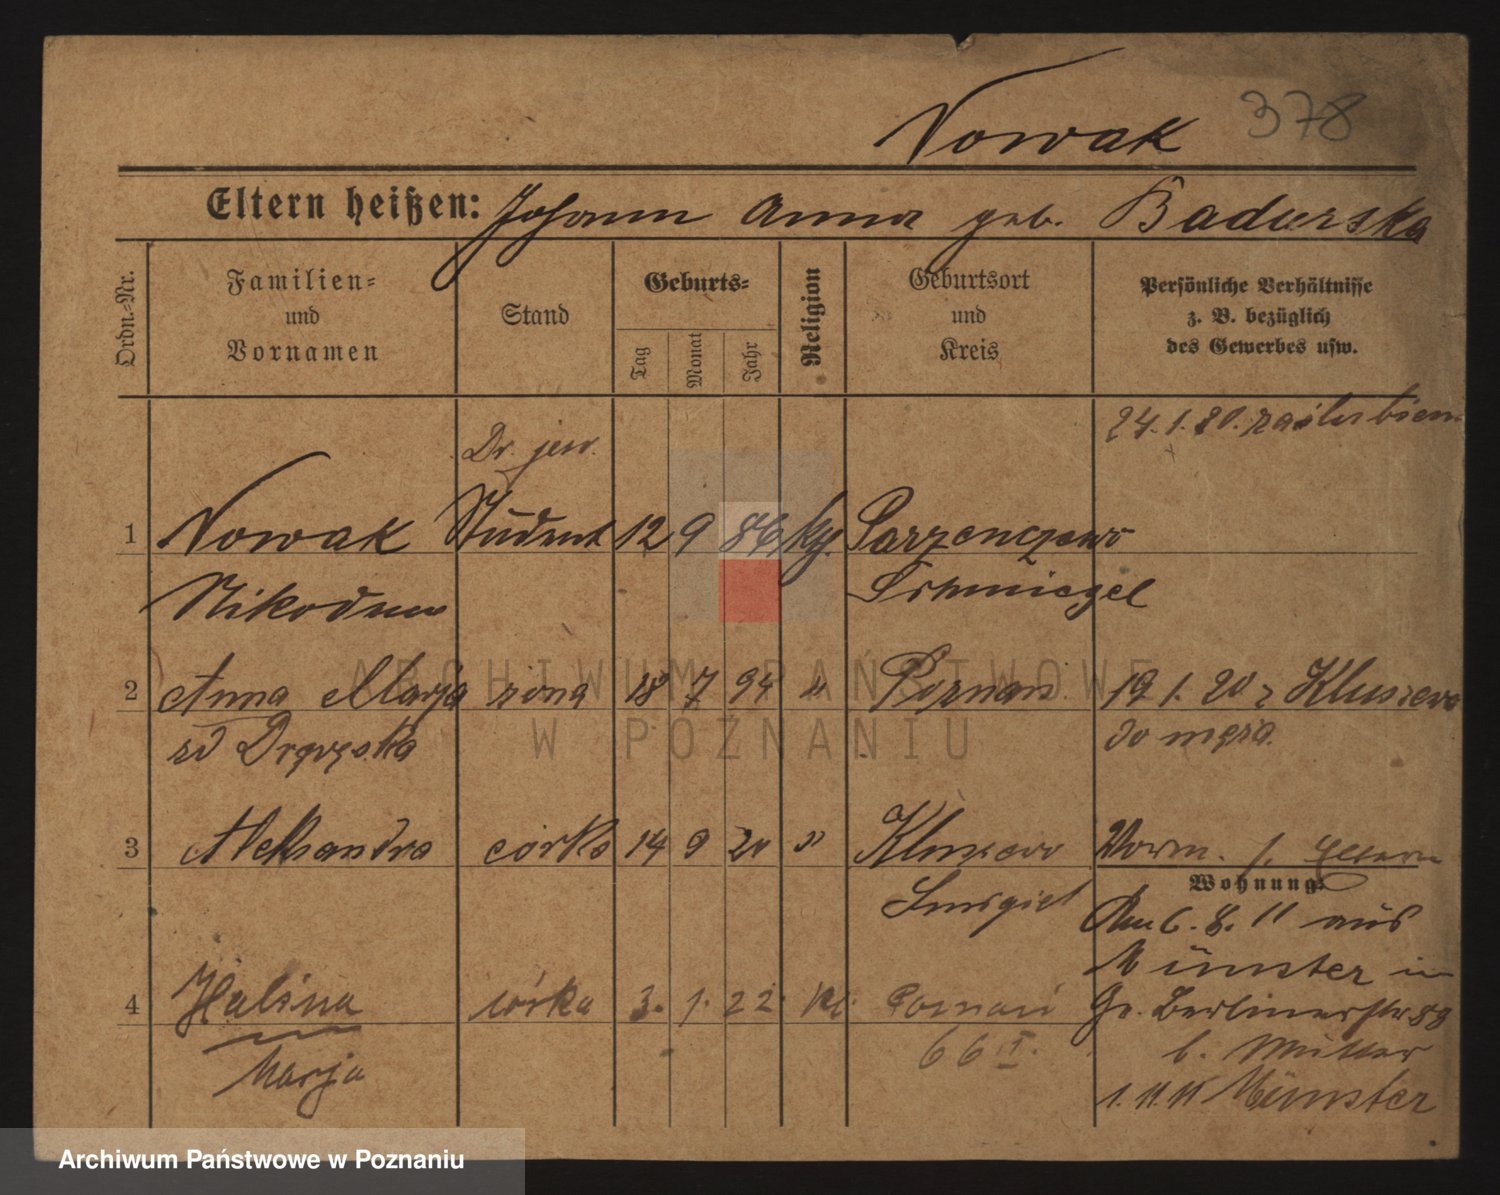 Nowak 378
Eltern heißen: Johann Anna geb. Badurska
Ordn.-Nr.
Familien-
und
Vornamen
Stand
Geburts-
Tag
Monat
Jahr
Religion
Geburtsort
und
Kreis
Persönliche Verhältnisse
z. B. bezüglich
des Gewerbes usw.
24.1.20.
Dr.
1 Nowak Student 12 9 86 kg.
Nikodem Schmiegel
2 Anna Marja żona 18 7 94 " Poznań 19 1. 20 z Kluczewo
do męża.
3 Aleksandra córka 14 9 20 " Kluczewo Worm. s. Eltern
Wohnung:
Śmigiel Am 6. 8. 11 aus
Münster in
4 Halina córka 3. 1. 22 Poznań Gr. Berlinerstr. 88
Marja 66 I. b. Müller
1. 11. 11 Münster
ARCHIWUM PAŃSTWOWE
W POZNANIU
Archiwum Państwowe w Poznaniu